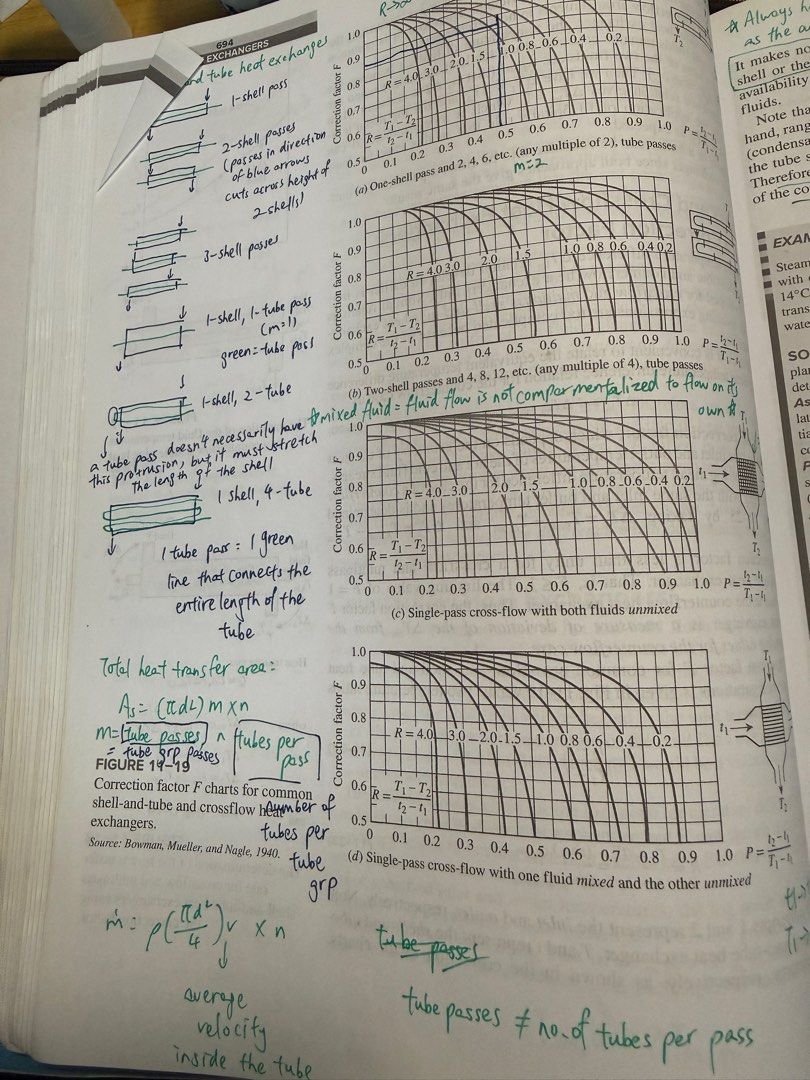 694
EXCHANGERS
and tube heat exchanges
1-shell pass
2-shell passes
(passes in direction
of blue arrows
cuts across height of
2 shells)
3-shell passes
1-shell, 1-tube pass
(m=1)
green=tube pass
1-shell, 2-tube
a tube pass doesn't necessarily have
this protrusion, but it must stretch
the length of the shell
1 shell, 4-tube
1 tube pass = 1 green
line that connects the
entire length of the
tube
Total heat transfer area:
As = (πdL) m x n
m = tube passes n tubes per
pass
= tube grp passes
number of
tubes per
tube
grp
FIGURE 11–19
Correction factor F charts for common
shell-and-tube and crossflow heat
exchangers.
Source: Bowman, Mueller, and Nagle, 1940.
ṁ = ρ(πd²/4)v x n
average
velocity
inside the tube
R→∞
T2
Correction factor F
1.0
0.9
0.8
0.7
0.6
0.5
R = 4.0 3.0 2.0 1.5 1.0 0.8 0.6 0.4 0.2
R = T1 – T2 / t2 – t1
0 0.1 0.2 0.3 0.4 0.5 0.6 0.7 0.8 0.9 1.0
P = t2 – t1 / T1 – t1
(a) One-shell pass and 2, 4, 6, etc. (any multiple of 2), tube passes
m=2
Correction factor F
1.0
0.9
0.8
0.7
0.6
0.5
R = 4.0 3.0 2.0 1.5 1.0 0.8 0.6 0.4 0.2
R = T1 – T2 / t2 – t1
0 0.1 0.2 0.3 0.4 0.5 0.6 0.7 0.8 0.9 1.0
P = t2 – t1 / T1 – t1
(b) Two-shell passes and 4, 8, 12, etc. (any multiple of 4), tube passes
☆ mixed fluid = fluid flow is not compartmentalized to flow on its
own ☆
Correction factor F
1.0
0.9
0.8
0.7
0.6
0.5
R = 4.0 3.0 2.0 1.5 1.0 0.8 0.6 0.4 0.2
R = T1 – T2 / t2 – t1
0 0.1 0.2 0.3 0.4 0.5 0.6 0.7 0.8 0.9 1.0
P = t2 – t1 / T1 – t1
T1
t1
T2
(c) Single-pass cross-flow with both fluids unmixed
Correction factor F
1.0
0.9
0.8
0.7
0.6
0.5
R = 4.0 3.0 2.0 1.5 1.0 0.8 0.6 0.4 0.2
R = T1 – T2 / t2 – t1
0 0.1 0.2 0.3 0.4 0.5 0.6 0.7 0.8 0.9 1.0
P = t2 – t1 / T1 – t1
T1
t1
T2
(d) Single-pass cross-flow with one fluid mixed and the other unmixed
tube passes
tube passes ≠ no. of tubes per pass
☆ Always
as the
It makes no
shell or the
availability
fluids.
Note tha
hand, rang
(condensa
the tube s
Therefore
of the co
EXAM
Steam
with
14°C
trans
wate
SO
plan
det
As
lat
tia